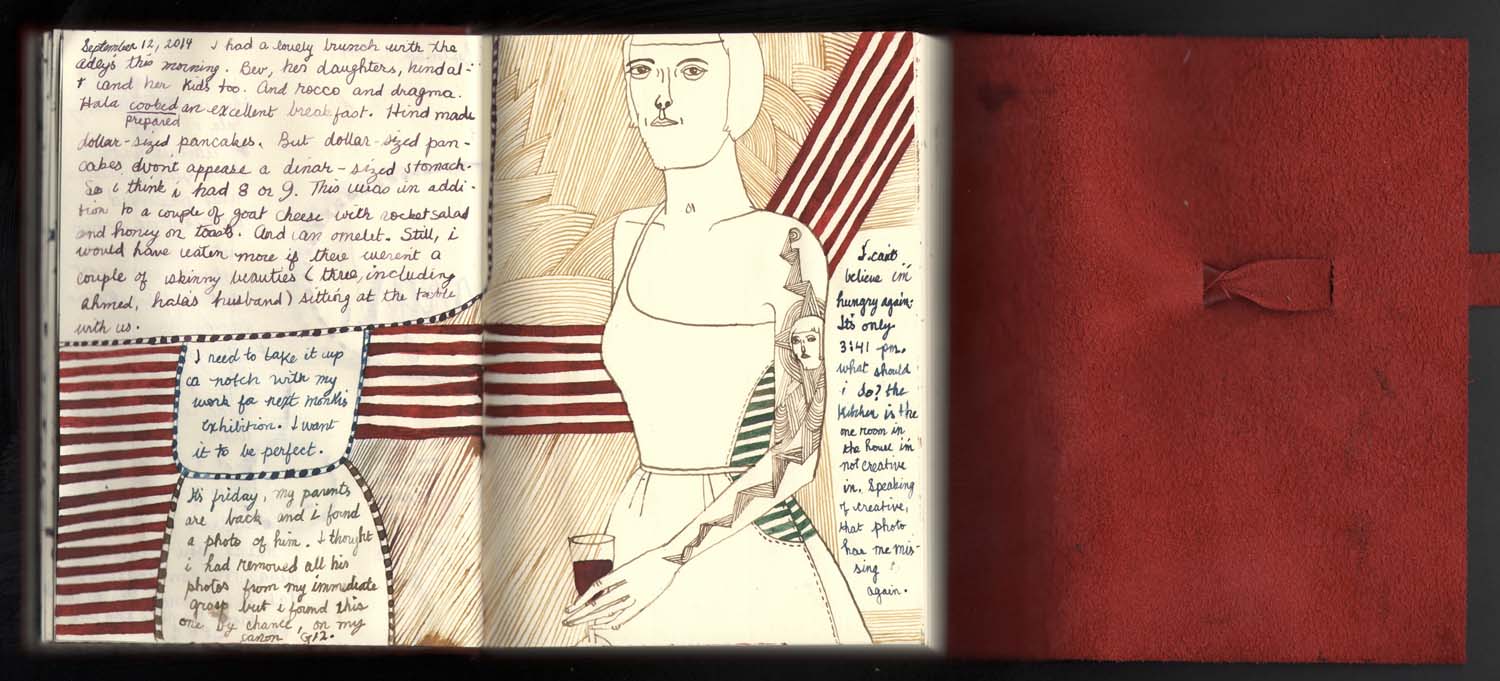 September 12, 2014 I had a lovely brunch with the
adeys this morning. Bev, her daughters, hind al-
t and her kids too. And rocco and dragma.
Hala cooked an excellent breakfast. Hind made
prepared
dollar-sized pancakes. But dollar-sized pan-
cakes don't appease a dinar-sized stomach.
So i think i had 8 or 9. This was in addi-
tion to a couple of goat cheese with rocket salad
and honey on toasts. And an omelet. Still, i
would have eaten more if there weren't a
couple of skinny beauties (three, including
ahmed, hala's husband) sitting at the table
with us.
I need to take it up
a notch with my
work for next months
exhibition. I want
it to be perfect.
It's friday, my parents
are back and i found
a photo of him. I thought
i had removed all his
photos from my immediate
grasp but i found this
one by chance, on my
canon G12.
I can't
believe i'm
hungry again.
It's only
3:41 pm.
what should
i do? the
kitchen is the
one room in
the house i'm
not creative
in. Speaking
of creative,
that photo
has me mis-
sing
again.